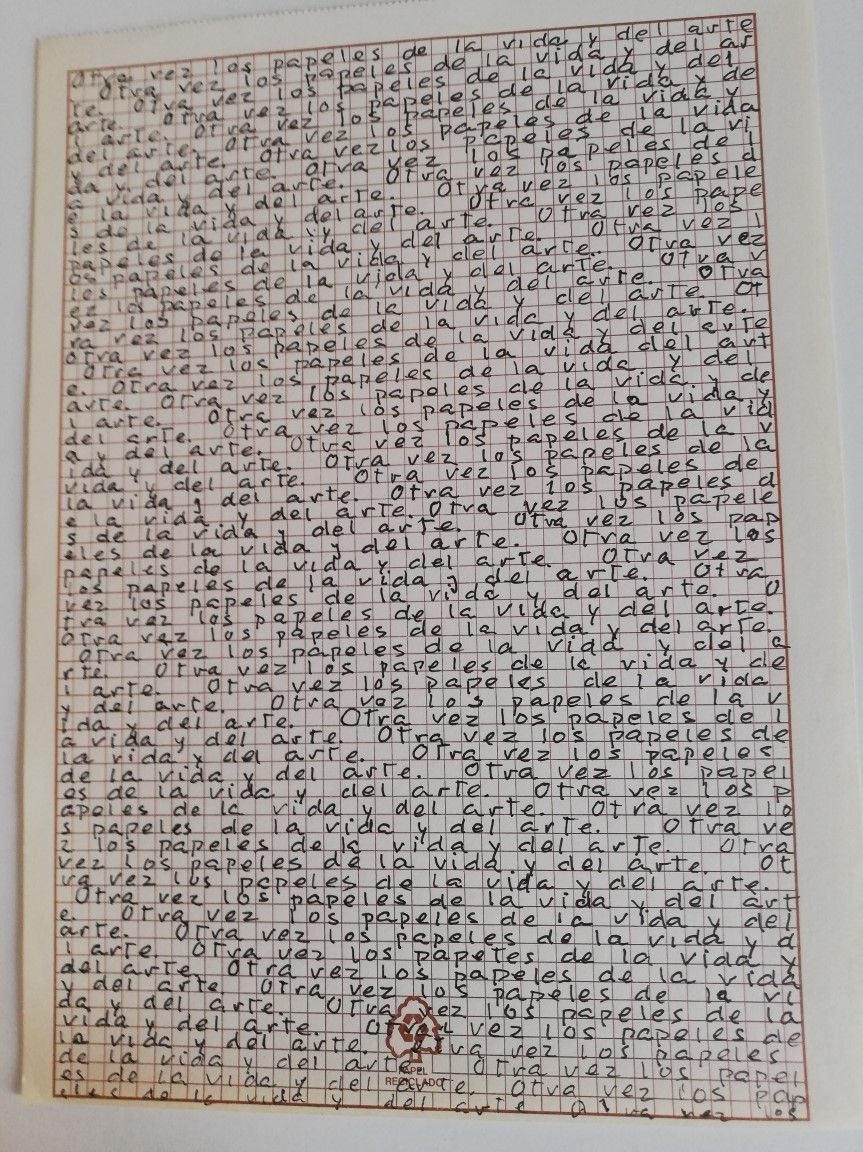 Otra vez los papeles de la vida y del arte
. Otra vez los papeles de la vida y del ar
te. Otra vez los papeles de la vida y del
arte. Otra vez los papeles de la vida y de
l arte. Otra vez los papeles de la vida y
del arte. Otra vez los papeles de la vida
y del arte. Otra vez los papeles de la vi
da y del arte. Otra vez los papeles de l
a vida y del arte. Otra vez los papeles d
e la vida y del arte. Otra vez los papele
s de la vida y del arte. Otra vez los pape
les de la vida y del arte. Otra vez los
papeles de la vida y del arte. Otra vez l
os papeles de la vida y del arte. Otra vez
los papeles de la vida y del arte. Otra v
ez los papeles de la vida y del arte. Otra
vez los papeles de la vida y del arte. Ot
ra vez los papeles de la vida y del arte.
Otra vez los papeles de la vida y del arte
. Otra vez los papeles de la vida del art
e. Otra vez los papeles de la vida y del
arte. Otra vez los papeles de la vida y de
l arte. Otra vez los papeles de la vida y
del arte. Otra vez los papeles de la vid
a y del arte. Otra vez los papeles de la v
ida y del arte. Otra vez los papeles de la
vida y del arte. Otra vez los papeles de
la vida y del arte. Otra vez los papeles d
e la vida y del arte. Otra vez los papele
s de la vida y del arte. Otra vez los pap
eles de la vida y del arte. Otra vez los
papeles de la vida y del arte. Otra vez
los papeles de la vida y del arte. Otra
vez los papeles de la vida y del arte. O
tra vez los papeles de la vida y del arte.
Otra vez los papeles de la vida y del arte.
Otra vez los papeles de la vida y del a
rte. Otra vez los papeles de la vida y de
l arte. Otra vez los papeles de la vida
y del arte. Otra vez los papeles de la v
ida y del arte. Otra vez los papeles de l
a vida y del arte. Otra vez los papeles de
la vida y del arte. Otra vez los papeles
de la vida y del arte. Otra vez los papel
es de la vida y del arte. Otra vez los p
apeles de la vida y del arte. Otra vez lo
s papeles de la vida y del arte. Otra ve
z los papeles de la vida y del arte. Otra
vez los papeles de la vida y del arte. Ot
ra vez los papeles de la vida y del arte.
Otra vez los papeles de la vida y del art
e. Otra vez los papeles de la vida y del
arte. Otra vez los papeles de la vida y d
l arte. Otra vez los papeles de la vida y
del arte. Otra vez los papeles de la vida
y del arte. Otra vez los papeles de la vi
da y del arte. Otra vez los papeles de la
vida y del arte. Otra vez los papeles de
la vida y del arte. Otra vez los papeles
de la vida y del arte. Otra vez los papel
es de la vida y del arte. Otra vez los pap
eles de la vida y del arte. Otra vez los
PAPEL
RECICLADO